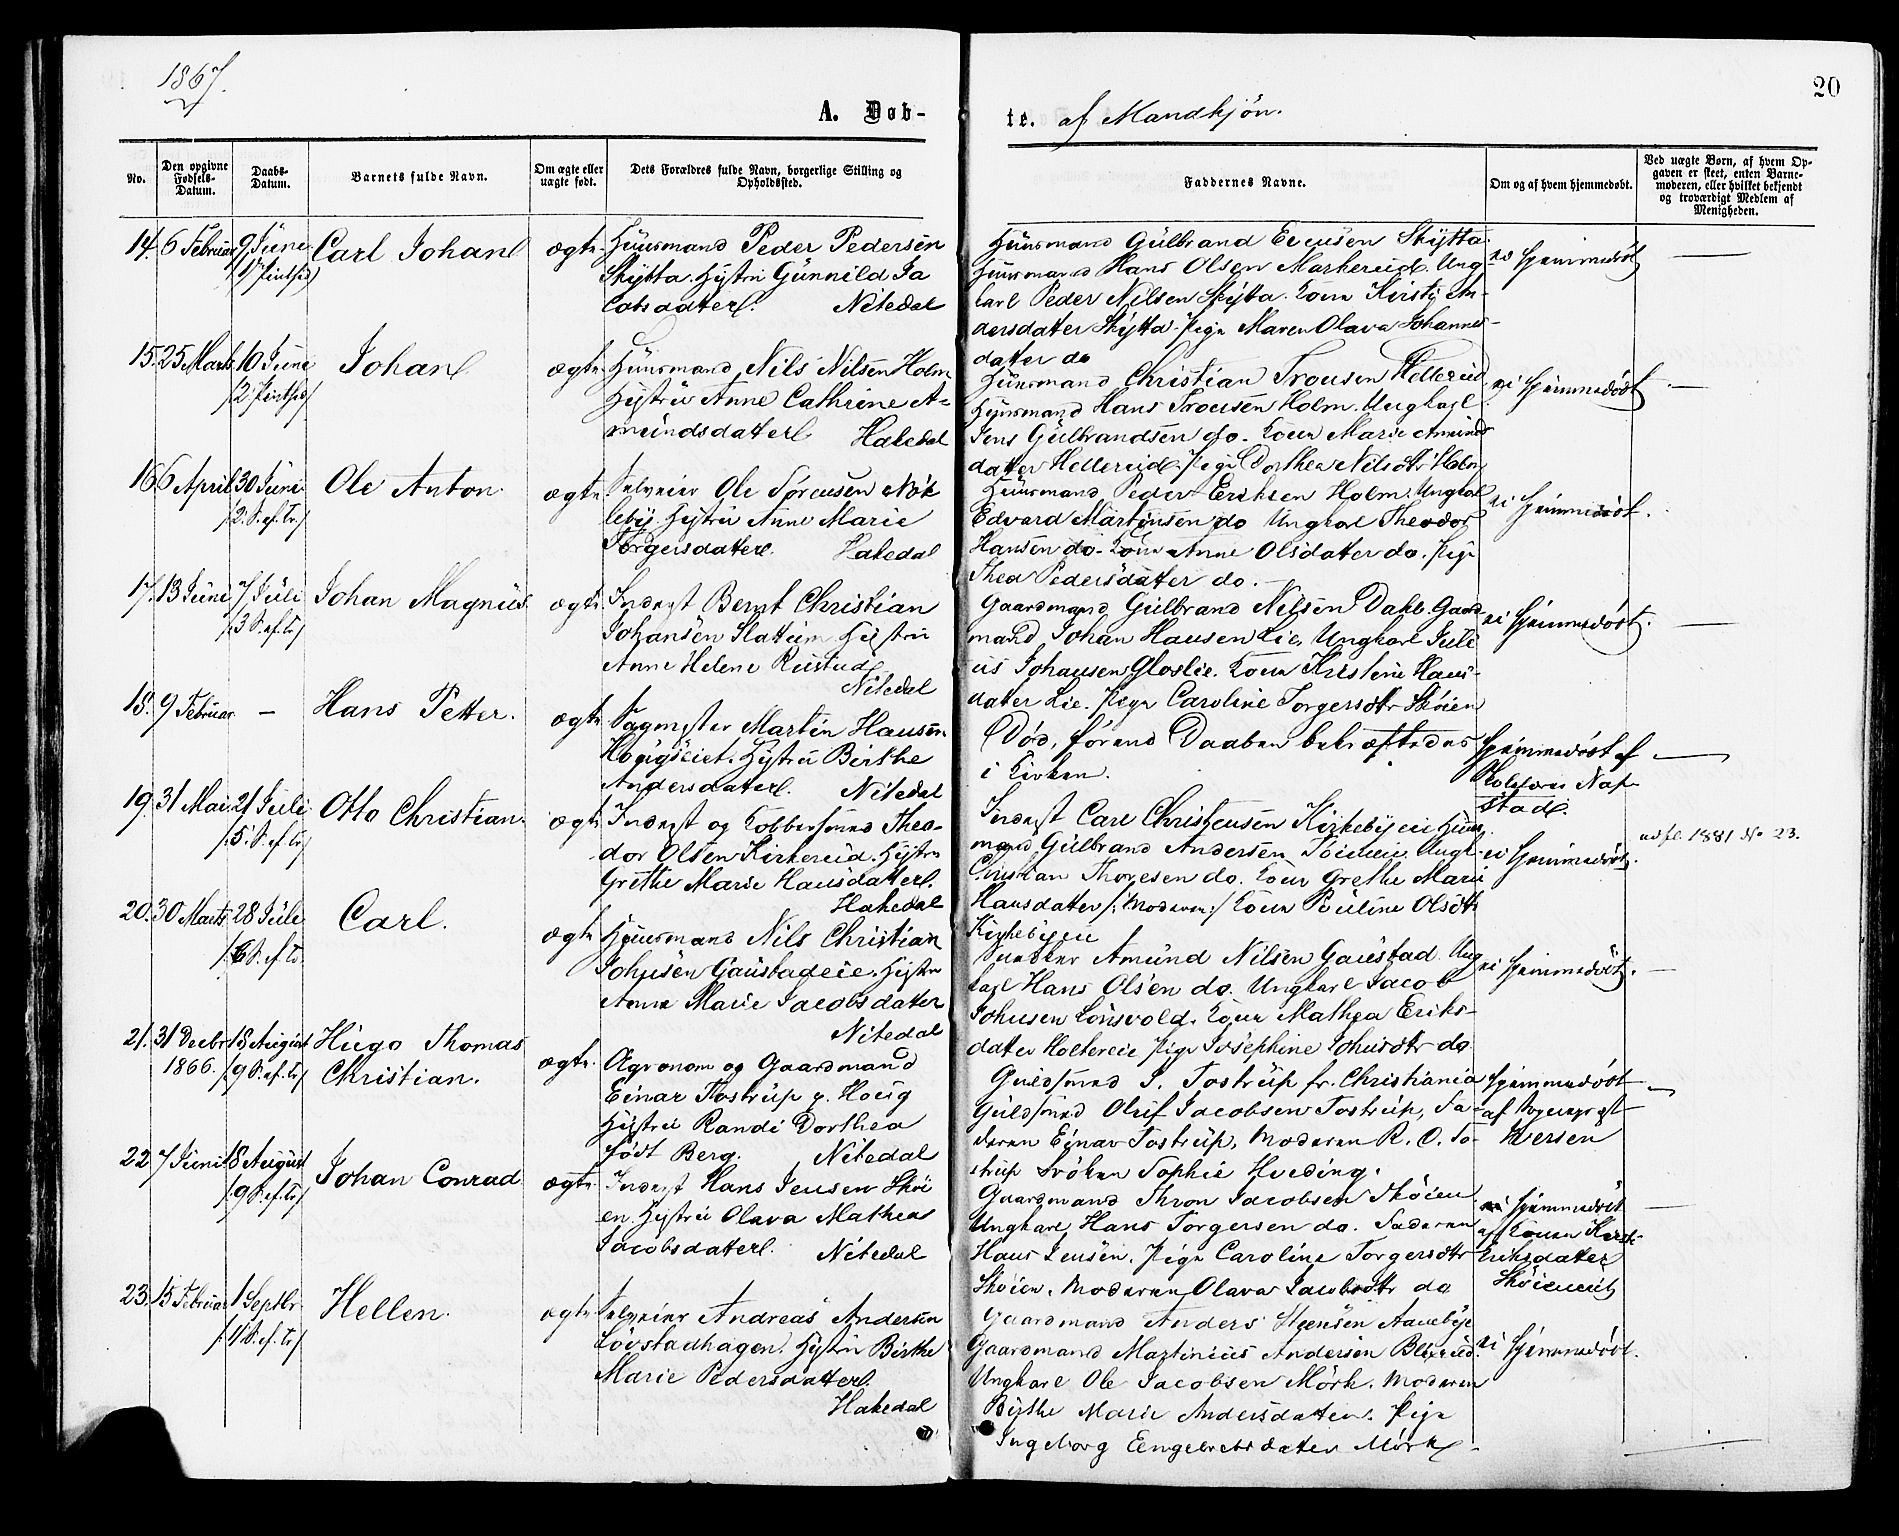 1867.
20
A. Døb-
te. af Mandkjøn.
No.
Den opgivne Fødsels-Datum.
Daabs-Datum.
Barnets fulde Navn.
Om ægte eller uægte født.
Dets Forældres fulde Navn, borgerlige Stilling og Opholdssted.
Faddernes Navne.
Om og af hvem hjemmedøbt.
Ved uægte Børn, af hvem Op-
gaven er skeet, enten Barne-
moderen, eller hvilket bekjendt
og troværdigt Medlem af
Menigheden.
14. 6 Februar 9 Juni Carl Johan ægte Huusmand Peder Pedersen
/1 Pintsed/ Skytta. Hustru Gunnild Ja
cobsdatter. Nitedal
Huusmand Gulbrand Evensen Skytta.
Huusmand Hans Olsen Markereid. Ung
karl Peder Nilsen Skytta. Kone Kirsti An-
dersdater Skytta. Pige Maren Olava Johannes-
dater do
ei hjemmedøbt —
15. 25 Marts 10 Juni Johan ægte Huusmand Nils Nilsen Holm
/2 Pintsed/ Hustru Anne Cathrine A-
mundsdatter Hakedal
Huusmand Christian Tronsen Hellereid
Huusmand Hans Tronsen Holm. Ungkarl
Jens Gulbrandsen do. Kone Marie Amunds
dater Hellereid. Pige Dorthea Nilsdtr Holm
ei hjemmedøbt. —
16 6 April 30 Juni Ole Anton. ægte Selveier Ole Sørensen Nøk
/2. S. ef. Tr/ leby. Hustru Anne Marie
Torgersdatter. Hakedal
Huusmand Peder Eriksen Holm. Ungkarl
Edvard Martinsen do Ungkarl Theodor
Hansen do. Kone Anne Olsdater do. Pige
Thea Pedersdater do.
ei hjemmedøbt.
17. 13 Juni 7 Juli Johan Magnus. ægte Inderst Bernt Christian
/3 S. ef. Tr/ Johansen Slattum Hustru
Anne Helene Rustad
Nitedal
Gaardmand Gulbrand Nilsen Dahl. Gaard
mand Johan Hansen Lie. Ungkarl Juli
us Johansen Gloslie. Kone Kristine Hans-
dater Lie. Pige Caroline Torgersdtr Skøien
ei hjemmedøbt. —
18. 9 Februar — Hans Petter. ægte Sagmester Martin Hansen
Hougseiet. Hustru Birthe
Andersdater. Nitedal
Død, førend Daaben bekræftedes
i Kirken.
hjemmedøbt af
stad. —
19. 31 Mai 21 Juli Otto Christian. ægte Inderst og Kobbersmed Theo-
/5. S. ef. Tr/ dor Olsen Kirkereid. Hustru
Grethe Marie Hansdatter.
Hakedal
Inderst Carl Christensen Kirkebyeie Huus
mand Gulbrand Andersen Ungk.
Christian Thoresen do. Kone Grethe Marie
Hansdater /: Moderen :/ Kone Pauline Olsdtr
Kirkebyeie
ei hjemmedøbt.
udfl. 1881 No 23.
20. 30 Marts 28 Juli Carl. ægte Huusmand Nils Christian
/6 S. ef. Tr. Johnsen Gaustadeie. Hustru
Anne Marie Jacobsdater
Nitedal
Snedker Amund Nilsen Gaustad. Ung
karl Hans Olsen do. Ungkarl Jacob
Johnsen Lønsvold. Kone Mathea Eriks-
dater Holtereie Pige Josephine Johnsdtr do
ei hjemmedøbt. —
21. 31 Decbr 18 August Hugo Thomas
1866. /9 S. ef. Tr/ Christian. ægte. Agronom og Gaardmand
Einar Tostrup g. Houg
Hustru Randi Dorthea
født Berg. Nitedal
Guldsmed J. Tostrup fr. Christiania
Guldsmed Oluf Jacobsen Tostrup, Fa-
deren Einar Tostrup, Moderen R. D. To-
strup Frøken Sophie Hveding.
hjemmedøbt
af Sogneprest
Iversen —
22 7 Juni 18 August Johan Conrad ægte Inderst Hans Jensen Skøi
/9 S. ef. Tr/ en. Hustru Olava Mathea
Jacobsdater. Nitedal
Gaardmand Thron Jacobsen Skøien
Ungkarl Hans Torgersen do. Faderen
Hans Jensen. Pige Caroline Torgersdtr
Skøien. Moderen Olava Jacobsdtr do
hjemmedøbt
af Konen Kirsti
Eriksdater
Skøieneiet —
23. 15 Februar 1 Septbr Hellen. ægte Selveier Andreas Andersen
/11 S. ef. Tr/ Løvstadhagen. Hustru Birthe
Marie Pedersdatter.
Hakedal
Gaardmand Anders Steensen Aaneby
Gaardmand Martinius Andersen Blexrud.
Ungkarl Ole Jacobsen Mørk. Moderen
Birthe Marie Andersdater. Pige
Ingeborg Engebretsdater Mørk.
ei hjemmedøbt.